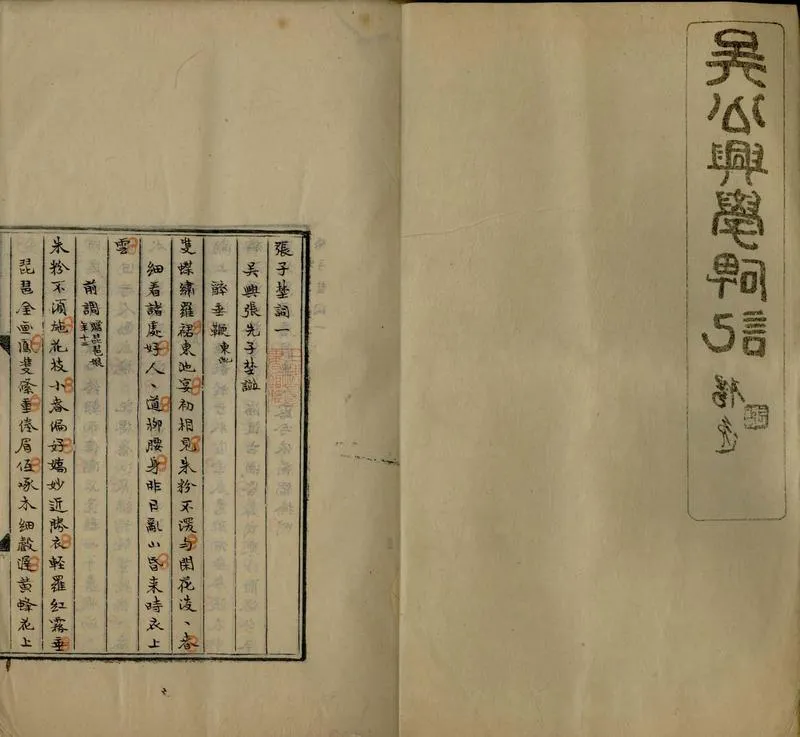 張子埜詞一
吳興張先子埜譔
醉垂鞭 東池
雙蝶繡羅裙東池宴初相見朱粉不深匀閑花淡、春
細看諸處好人、道柳腰身昨日亂山昏来時衣上
雲
前調 贈琵琶娘年十二
朱粉不須施花枝小春偏好嬌妙近勝衣輕羅紅霧垂
琵琶金画鳳雙絛重倦眉低啄木細聲遲黃蜂花上